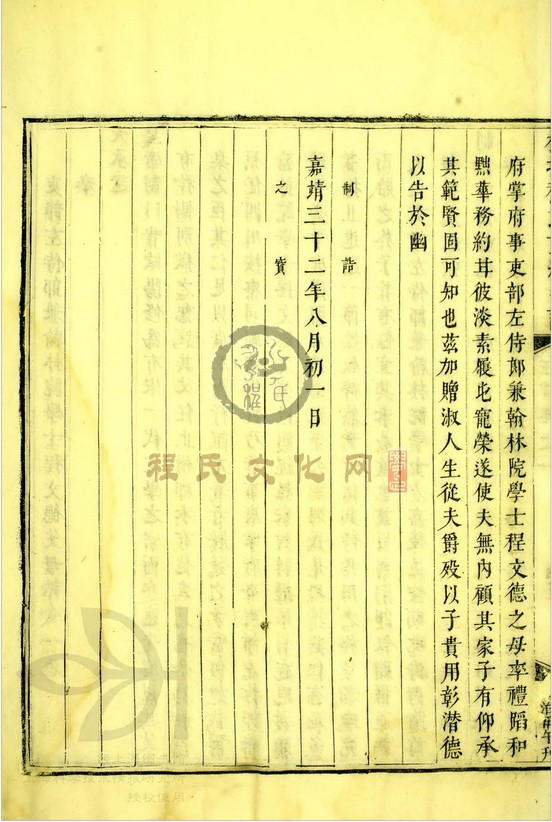 府掌府事吏部左侍郎兼翰林院學士程文德之母率禮蹈和
黜華務約茸彼淡素履此寵榮遂使夫無內顧其家子有仰承
其範賢固可知也茲加贈淑人生從夫爵歿以子貴用彰潜德
以告於幽
制誥
嘉靖三十二年八月初一日
之寶
程氏文化网
授权使用